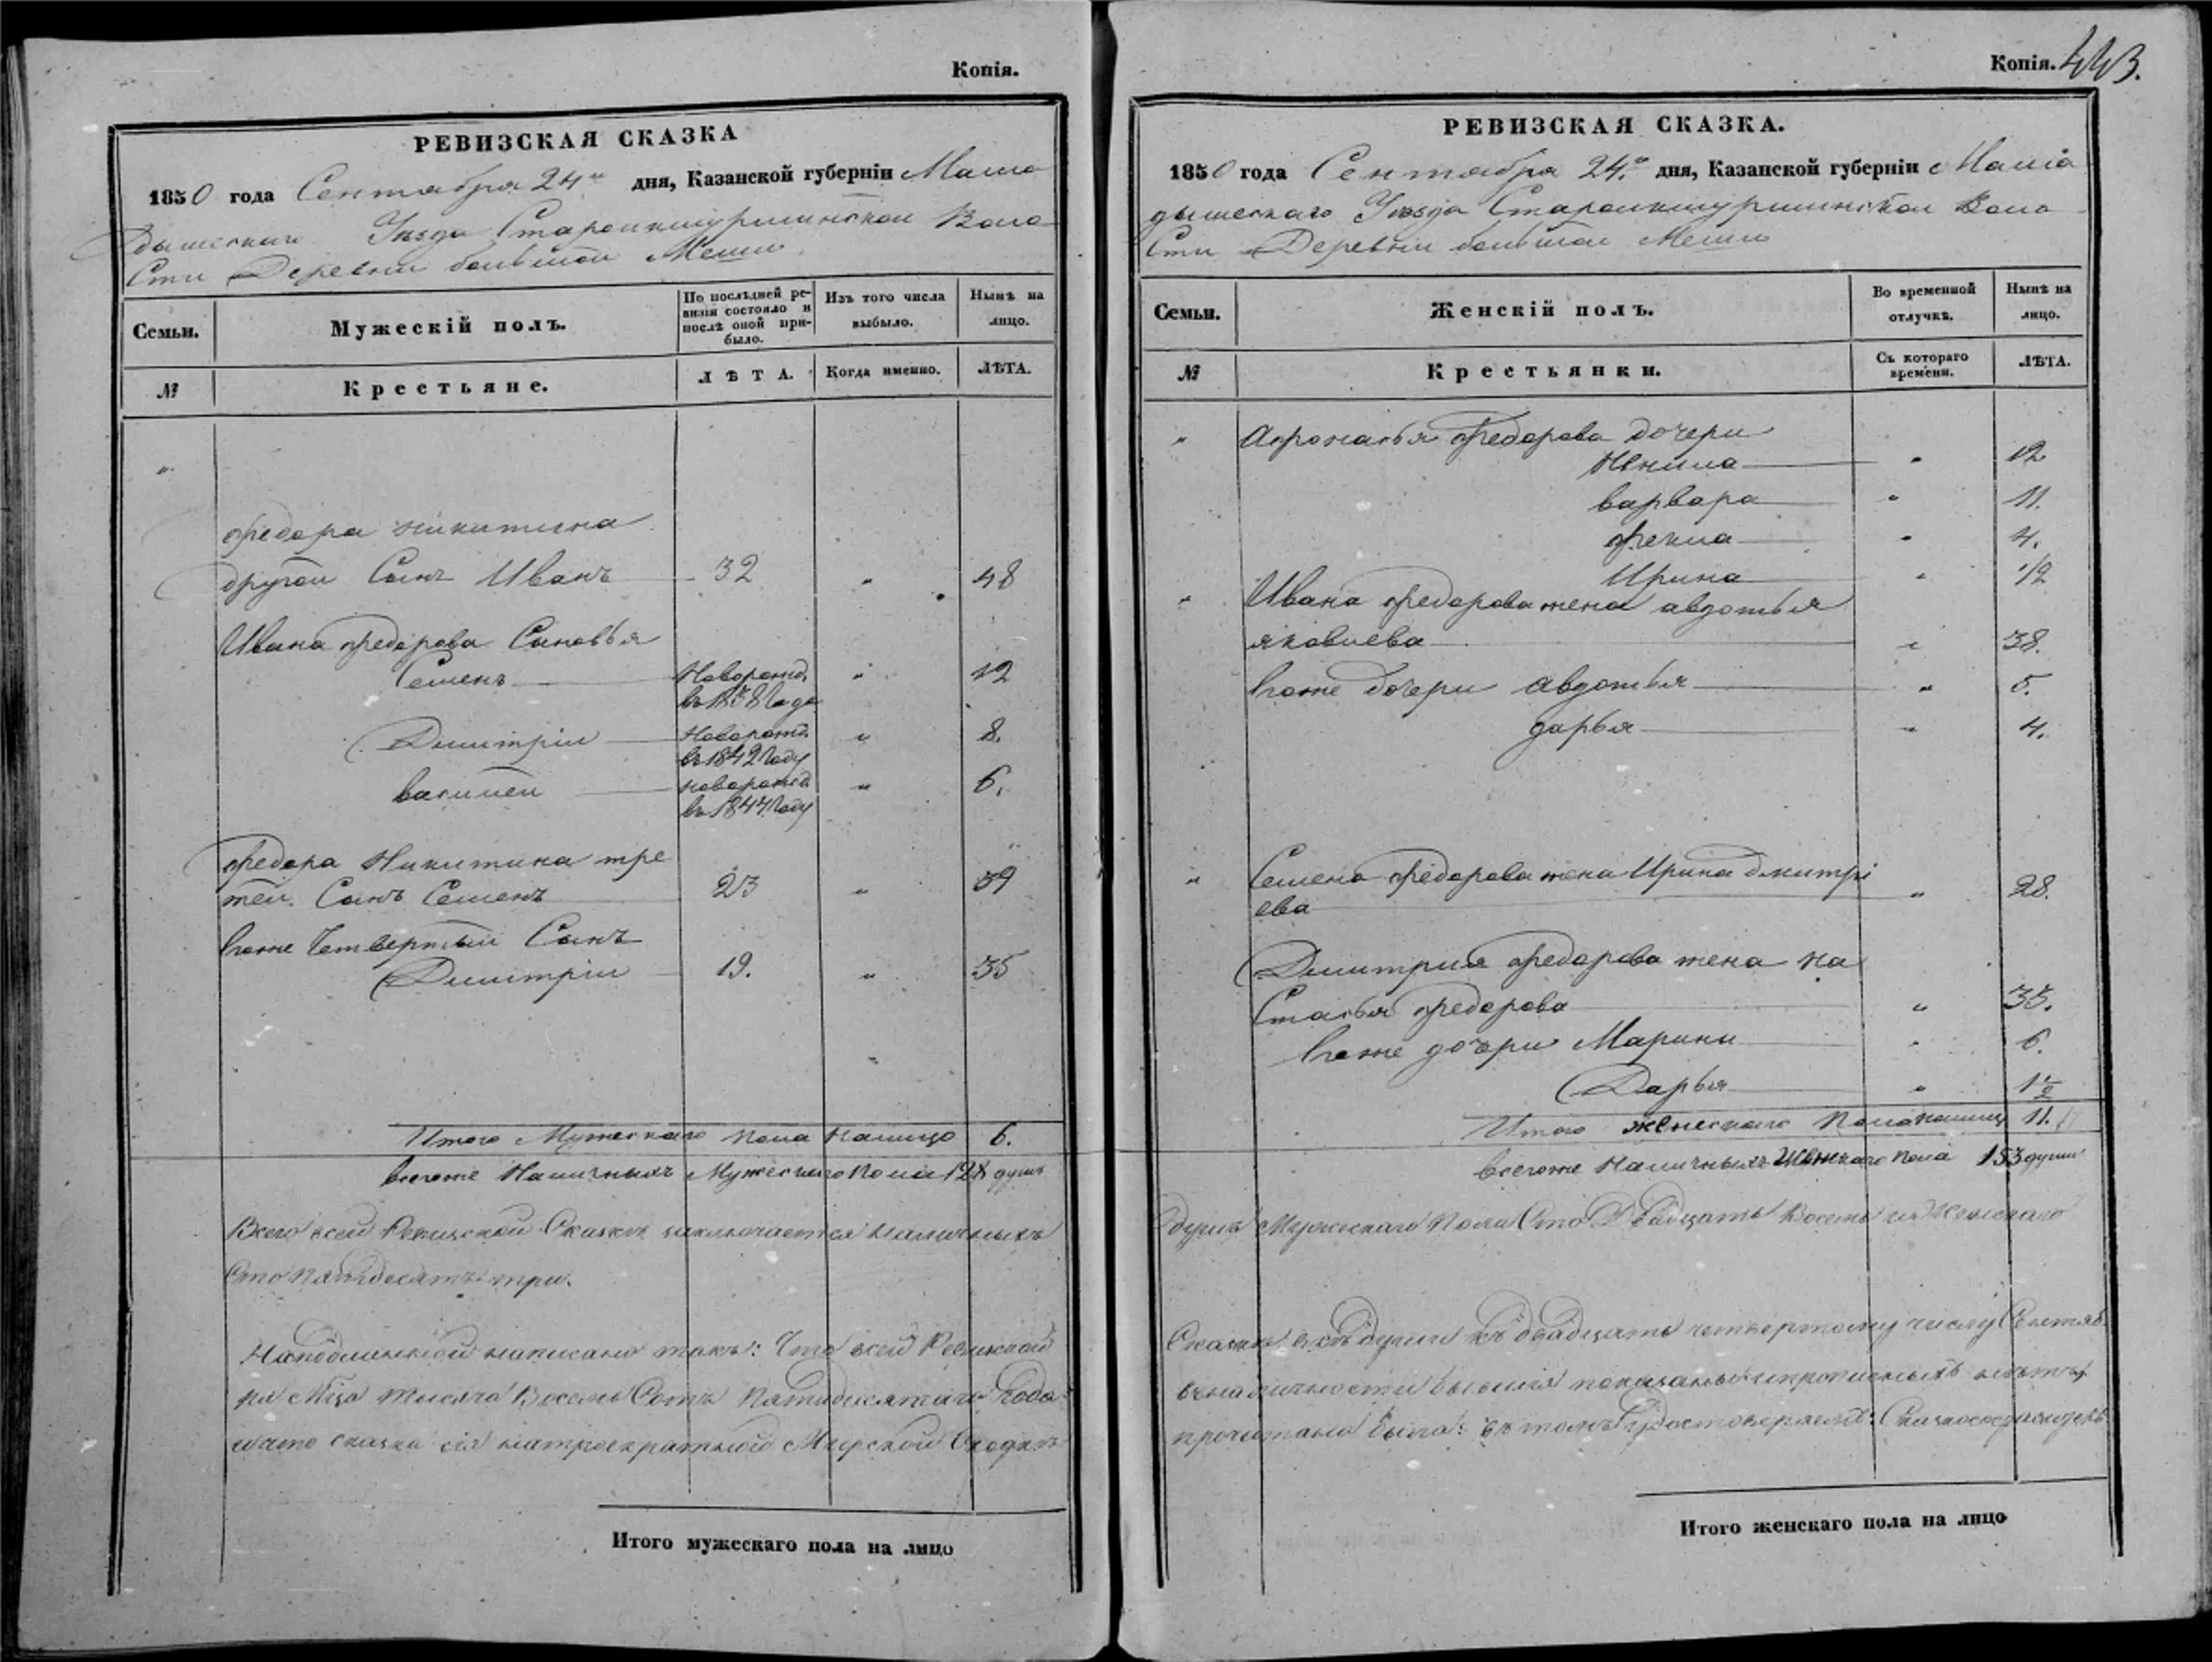 Копія.
РЕВИЗСКАЯ СКАЗКА
1850 года Сентября 24го дня, Казанской губерніи Мама
дышскаго Уѣзда Старокишуршинской Воло
сти Деревни большой Меши
Семьи.
Мужескій полъ.
По послѣдней ре-
визіи состояло и
послѣ оной при-
было.
Изъ того числа
выбыло.
Нынѣ на
лицо.
№
Крестьяне.
ЛѢТА.
Когда именно.
ЛѢТА.
федора никитина
другой Сынъ Иванъ 32 " 48
Ивана федорова Сыновья
Семенъ Новорожд. " 12
въ 1838 годе
Димитріи Новорожд. " 8.
въ 1842 году
василеи новорожд " 6.
въ 1844 году
федора Никитина тре
теи Сынъ Семенъ 23 " 39
Егоже Четвертыи Сынъ
Димитріи 19. " 35
Итого Мужескаго пола налицо 6.
всегоже Наличныхъ Мужескаго пола 128 душъ
Всего всей Ревизской Сказкѣ заключается наличныхъ
Сто пятьдесятъ три.
На подлинной написано такъ: Что всей Ревизской
ря М-ца тысяча Восемь Сотъ пятидесятаго года
и что сказка сія на троекратной Мирской Сходкѣ
Итого мужескаго пола на лицо
Копія. 443.
РЕВИЗСКАЯ СКАЗКА.
1850 года Сентября 24го дня, Казанской губерніи Мама
дышскаго Уѣзда Старокишуршинской Воло
сти Деревни большой Меши
Семьи.
Женскій полъ.
Во временной
отлучкѣ.
Нынѣ на
лицо.
№
Крестьянки.
Съ котораго
времени.
ЛѢТА.
" Афонасья федорова дочери
Ненила " 12
варвара " 11.
фекла " 4.
Ирина " 1/2
" Ивана федорова жена авдотья
яковлева " 38.
Егоже дочери авдотья " 5.
дарья " 4.
" Семена федорова жена Ирина дмитрі
ева " 28.
Димитрия федорова жена на
стасья федорова " 35.
Егоже дочери Марина " 6.
Дарья " 1 1/2
Итого женскаго пола налицо 11.
всегоже наличныхъ Женскаго пола 153 души
душъ Мужескаго пола Сто Двадцать Восемь и Женскаго
Сказкѣ всѣ души къ двадцать четвертому числу Сентяб
въ наличности бывшія показаны и прописныхъ нѣтъ,
прочитана была: въ томъ удостовѣряемъ:
Итого женскаго пола на лицо